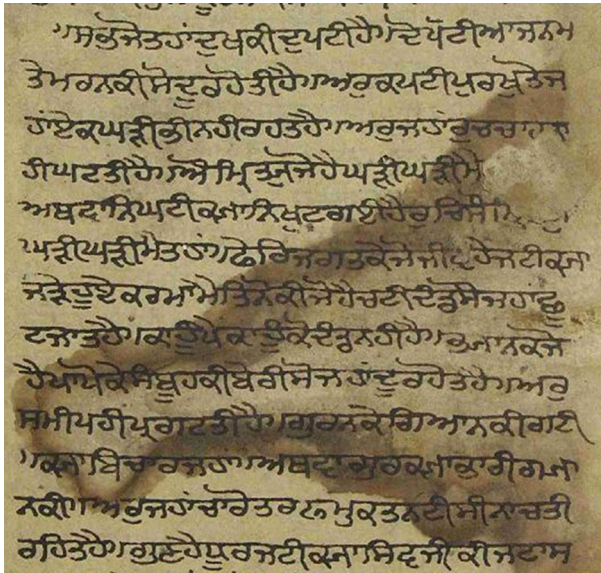 ।ਸਭ ਜੋ ਤਹਾਂ ਦੁਖ ਕੀ ਦੁਪਟੀ ਹੈ।ਦੋ ਪੌਟੀਆ ਜਨਮ
ਤੇ ਮਰਨ ਕੀ ਸੋ ਦੂਰ ਹੋਤੀ ਹੈ।ਅਰੁ ਕਪਟੀ ਪੁਰਖੁ ਤੋ ਜ
ਹਾਂ ਏਕ ਘੜੀ ਭੀ ਨਹੀ ਰਹਤ ਹੈ।ਅਰੁ ਜਹਾਂ ਰੁਚ
ਹੀ ਘਟਤੀ ਹੈ।ਔ ਮ੍ਰਿਤੁ ਜੋ ਹੈ ਘੜੀ ਘੜੀ ਮੈ
ਅਥਵਾ ਨਿਘਟੀ ਕ੍ਯਾ ਨਿਖੁਟ ਗਈ ਹੈ ਰੁਚਿ
ਘੜੀ ਘੜੀ ਮੈ ਤਹਾਂ।ਫੇਰਿ ਜਗਤ ਕੇ ਜੋ ਜੀਵ ਹੈ ਜਟੀ ਕ੍ਯਾ
ਜੜੇ ਹੂਏ ਕਰਮਾ ਮੈ ਤਿਨੋ ਕੀ ਜੋ ਹੈ ਚਟੀ ਦੰਡੁ ਸੋ ਜਹਾਂ ਛੂ
ਟ ਜਾਤ ਹੈ।ਕਾਹੂੰ ਪੈ ਕਾਹੂੰ ਕੋ ਦੰਡੁ ਨਹੀ ਹੈ। ਜੋ
ਹੈ ਪਾਪੋ ਕੇ ਸੰਬੂਹ ਕੀ ਬੇਰੀ ਸੋ ਜਹਾਂ ਦੂਰ ਹੋਤ ਹੈ।ਅਰੁ
ਸਮੀਪ ਹੀ ਪ੍ਰਗਟਤੀ ਹੈ।ਗੁਰਨ ਕੇ ਗਿਆਨ ਕੀ ਗਟੀ
।ਕ੍ਯਾ ਬਿਚਾਰ ਜਹਾਂ।ਅਥਵਾ ਗੁਰ ਕ੍ਯਾ ਭਾਰੀ ਗ੍ਯਾ
ਨ ਕੀ।ਅਰੁ ਜਹਾਂ ਚਾਰੋ ਤਰਫ ਮੁਕਤ ਨਟੀ ਸੀ ਨਾਚਤੀ
ਰਹਿਤ ਹੈ।ਗੁਣ ਹੈ ਧੂਰਜਟੀ ਕ੍ਯਾ ਸਿਵਜੀ ਕੀ ਜਟਾ ਸ